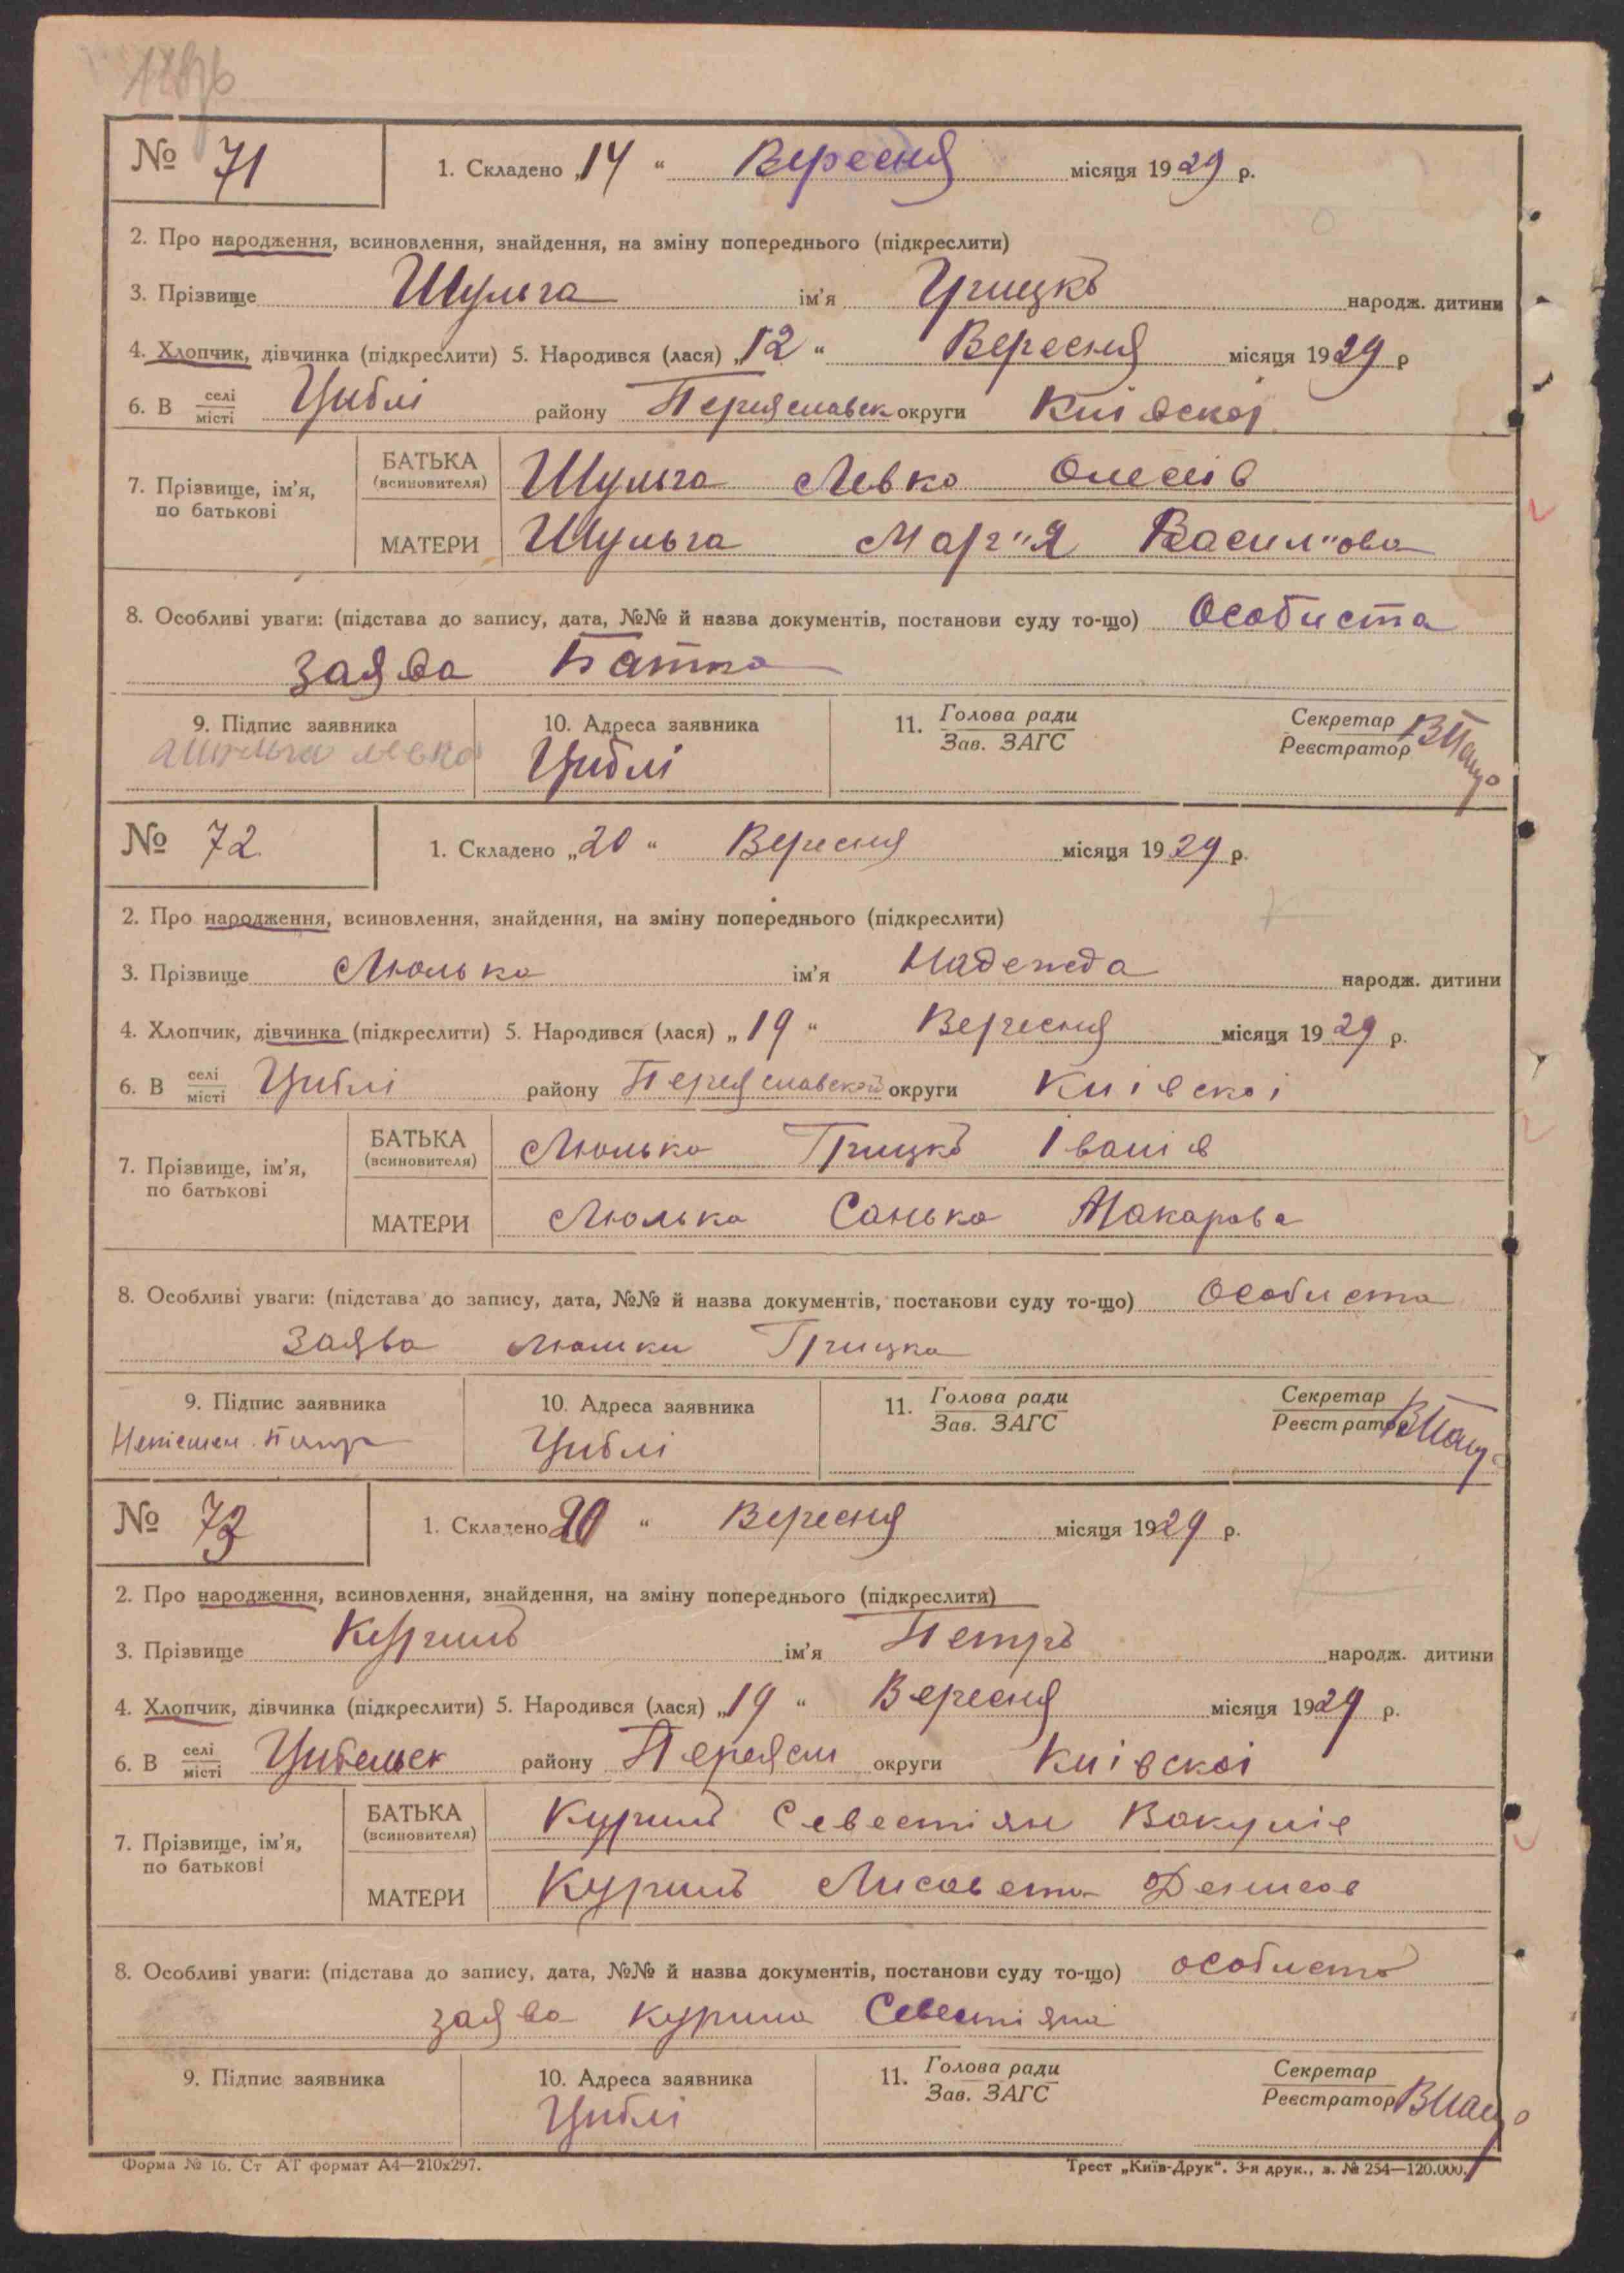 № 71
1. Складено „14“ Вересня місяця 1929 р.
2. Про народження, всиновлення, знайдення, на зміну попереднього (підкреслити)
3. Прізвище Шульга ім'я Грицкъ народж. дитини
4. Хлопчик, дівчинка (підкреслити) 5. Народився (лася) „12“ Вересня місяця 1929 р
6. В селі місті Циблі району Переяславск округи Киівскоі
7. Прізвище, ім'я, по батькові
БАТЬКА (всиновителя) Шульга Левко Олесіїв
МАТЕРИ Шульга Мар'я Васил"ова
8. Особливі уваги: (підстава до запису, дата, №№ й назва документів, постанови суду то-що) Особиста
заява Батка
9. Підпис заявника 10. Адреса заявника 11. Голова ради Зав. ЗАГС Секретар Реєстратор
Шульга Левко Циблі
№ 72
1. Складено „20“ Вересня місяця 1929 р.
2. Про народження, всиновлення, знайдення, на зміну попереднього (підкреслити)
3. Прізвище Люлька ім'я Надежда народж. дитини
4. Хлопчик, дівчинка (підкреслити) 5. Народився (лася) „19“ Вересня місяця 1929 р.
6. В селі місті Циблі району Переяславскоі округи Киівскоі
7. Прізвище, ім'я, по батькові
БАТЬКА (всиновителя) Люлька Грицкъ Іванів
МАТЕРИ Люлька Санька Макарова
8. Особливі уваги: (підстава до запису, дата, №№ й назва документів, постанови суду то-що) Особиста
заява Люлки Грицка
9. Підпис заявника 10. Адреса заявника 11. Голова ради Зав. ЗАГС Секретар Реєстратор
Циблі
№ 73
1. Складено 20 “ Вересня місяця 1929 р.
2. Про народження, всиновлення, знайдення, на зміну попереднього (підкреслити)
3. Прізвище Курилъ ім'я Петръ народж. дитини
4. Хлопчик, дівчинка (підкреслити) 5. Народився (лася) „19“ Вересня місяця 1929 р.
6. В селі місті Цибельск району Переясл округи Киівскоі
7. Прізвище, ім'я, по батькові
БАТЬКА (всиновителя) Курилъ Севестіян Вакулів
МАТЕРИ Курилъ Лисавета Денисов
8. Особливі уваги: (підстава до запису, дата, №№ й назва документів, постанови суду то-що) особиста
заява Курила Севестіяна
9. Підпис заявника 10. Адреса заявника 11. Голова ради Зав. ЗАГС Секретар Реєстратор
Циблі
Форма № 16. Ст АТ формат А4—210х297. Трест „Київ-Друк“. 3-я друк., з. № 254—120.000.